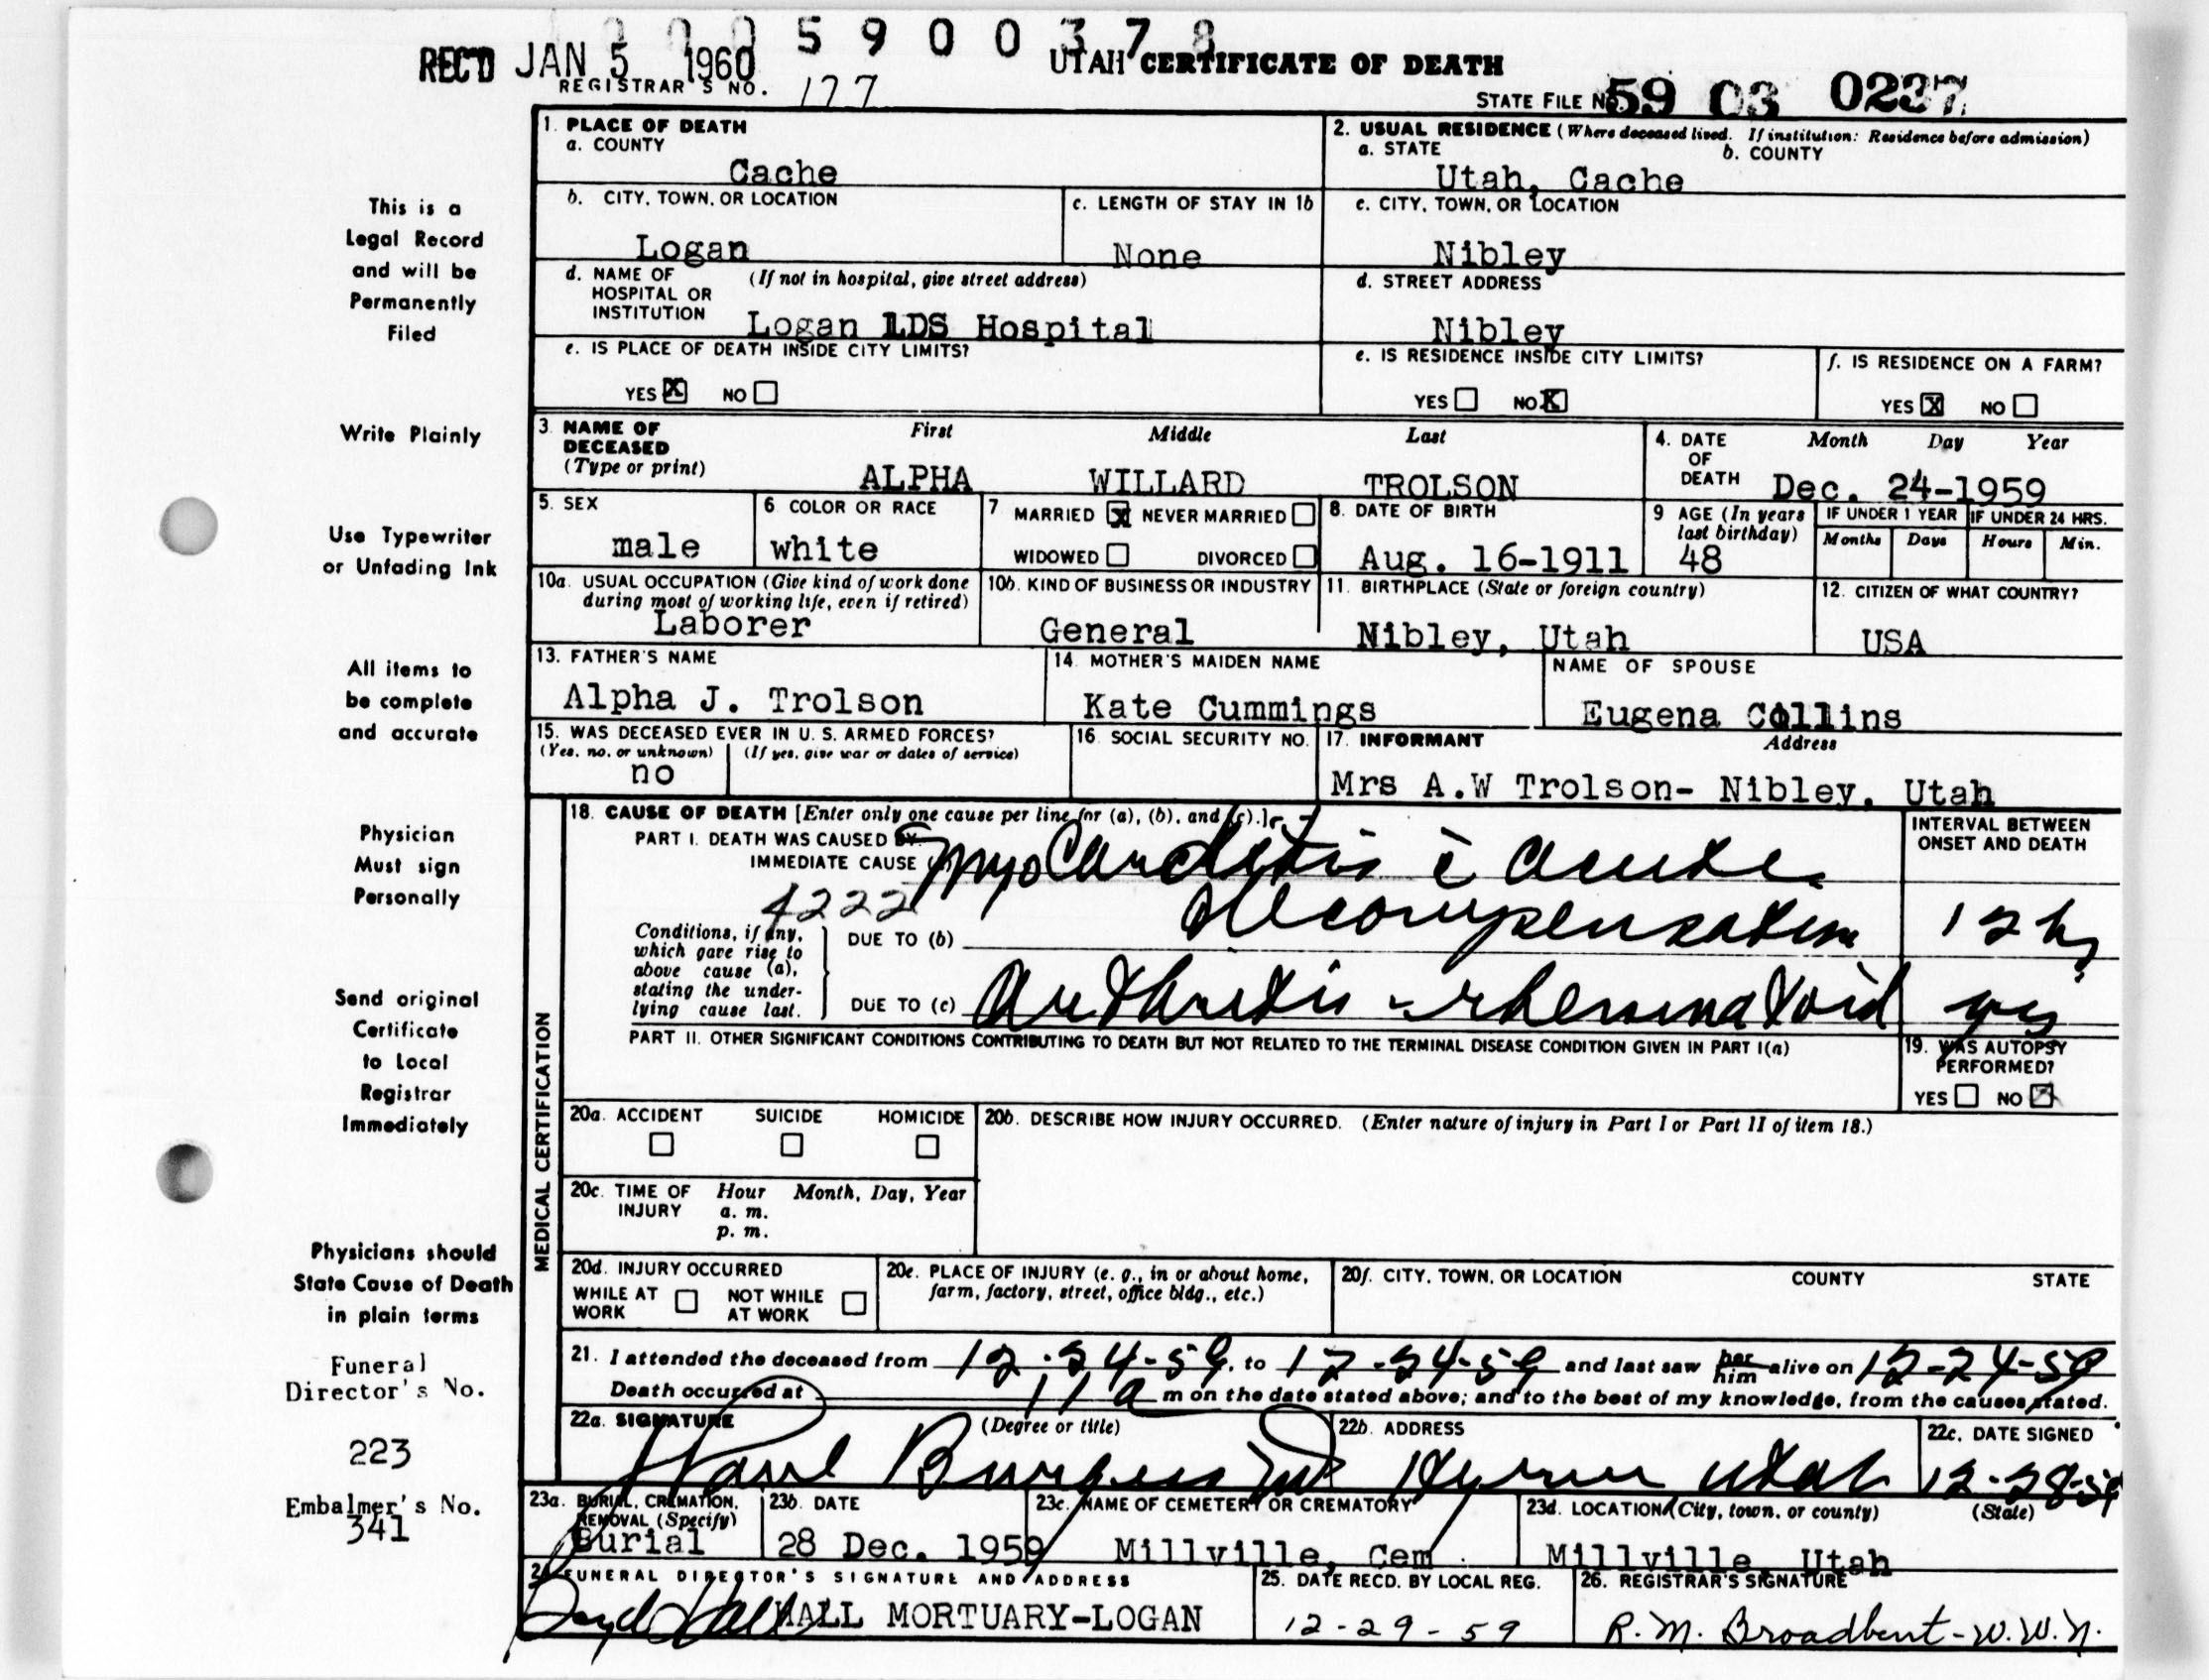 0 0 0 5 9 0 0 3 7 8
REC'D JAN 5 1960
UTAH CERTIFICATE OF DEATH
REGISTRAR'S NO. 177
STATE FILE NO. 59 03 0237
This is a
Legal Record
and will be
Permanently
Filed
Write Plainly
Use Typewriter
or Unfading Ink
All items to
be complete
and accurate
Physician
Must sign
Personally
Send original
Certificate
to Local
Registrar
Immediately
Physicians should
State Cause of Death
in plain terms
Funeral
Director's No.
223
Embalmer's No.
341
1. PLACE OF DEATH
a. COUNTY
Cache
2. USUAL RESIDENCE (Where deceased lived. If institution: Residence before admission)
a. STATE b. COUNTY
Utah, Cache
b. CITY, TOWN, OR LOCATION
Logan
c. LENGTH OF STAY IN 1b
None
c. CITY, TOWN, OR LOCATION
Nibley
d. NAME OF (If not in hospital, give street address)
HOSPITAL OR
INSTITUTION
Logan LDS Hospital
d. STREET ADDRESS
Nibley
e. IS PLACE OF DEATH INSIDE CITY LIMITS?
YES X NO
e. IS RESIDENCE INSIDE CITY LIMITS?
YES NO X
f. IS RESIDENCE ON A FARM?
YES X NO
3. NAME OF DECEASED First Middle Last
(Type or print)
ALPHA WILLARD TROLSON
4. DATE OF DEATH Month Day Year
Dec. 24-1959
5. SEX
male
6 COLOR OR RACE
white
7 MARRIED X NEVER MARRIED
WIDOWED DIVORCED
8. DATE OF BIRTH
Aug. 16-1911
9 AGE (In years last birthday)
48
IF UNDER 1 YEAR IF UNDER 24 HRS.
Months Days Hours Min.
10a. USUAL OCCUPATION (Give kind of work done
during most of working life, even if retired)
Laborer
10b. KIND OF BUSINESS OR INDUSTRY
General
11. BIRTHPLACE (State or foreign country)
Nibley, Utah
12. CITIZEN OF WHAT COUNTRY?
USA
13. FATHER'S NAME
Alpha J. Trolson
14. MOTHER'S MAIDEN NAME
Kate Cummings
NAME OF SPOUSE
Eugena Collins
15. WAS DECEASED EVER IN U. S. ARMED FORCES?
(Yes, no, or unknown) (If yes, give war or dates of service)
no
16. SOCIAL SECURITY NO.
17. INFORMANT Address
Mrs A.W Trolson- Nibley, Utah
MEDICAL CERTIFICATION
18. CAUSE OF DEATH [Enter only one cause per line for (a), (b), and (c).]
PART I. DEATH WAS CAUSED BY:
IMMEDIATE CAUSE (a) Myocarditis c̄ acute
4222
decompensation
INTERVAL BETWEEN
ONSET AND DEATH
12 hs
Conditions, if any,
which gave rise to
above cause (a),
stating the under-
lying cause last.
DUE TO (b)
DUE TO (c) Arthritis - rheumatoid yrs
PART II. OTHER SIGNIFICANT CONDITIONS CONTRIBUTING TO DEATH BUT NOT RELATED TO THE TERMINAL DISEASE CONDITION GIVEN IN PART I(a)
19. WAS AUTOPSY
PERFORMED?
YES NO X
20a. ACCIDENT SUICIDE HOMICIDE
20b. DESCRIBE HOW INJURY OCCURRED. (Enter nature of injury in Part I or Part II of item 18.)
20c. TIME OF INJURY Hour Month, Day, Year
a. m.
p. m.
20d. INJURY OCCURRED
WHILE AT WORK NOT WHILE AT WORK
20e. PLACE OF INJURY (e. g., in or about home,
farm, factory, street, office bldg., etc.)
20f. CITY, TOWN, OR LOCATION COUNTY STATE
21. I attended the deceased from 12-24-59, to 12-24-59 and last saw her him alive on 12-24-59
Death occurred at 11 a m on the date stated above; and to the best of my knowledge, from the causes stated.
22a. SIGNATURE (Degree or title)
Paul Burgess MD
22b. ADDRESS
Hyrum Utah
22c. DATE SIGNED
12-28-59
23a. BURIAL, CREMATION,
REMOVAL (Specify)
Burial
23b. DATE
28 Dec. 1959
23c. NAME OF CEMETERY OR CREMATORY
Millville, Cem.
23d. LOCATION (City, town, or county) (State)
Millville, Utah
24. FUNERAL DIRECTOR'S SIGNATURE AND ADDRESS
HALL MORTUARY-LOGAN
25. DATE RECD. BY LOCAL REG.
12-29-59
26. REGISTRAR'S SIGNATURE
R. M. Broadbent - W.W.N.